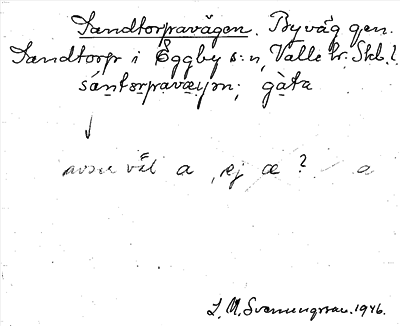 Sandtorpavägen. Byväg gen.
Sandtorp i Eggby s:n, Valle hr. Skb.l.
sántorpavæɡən; gàta
avser väl a, ej æ? a
L. M. Svenungsson. 1946.